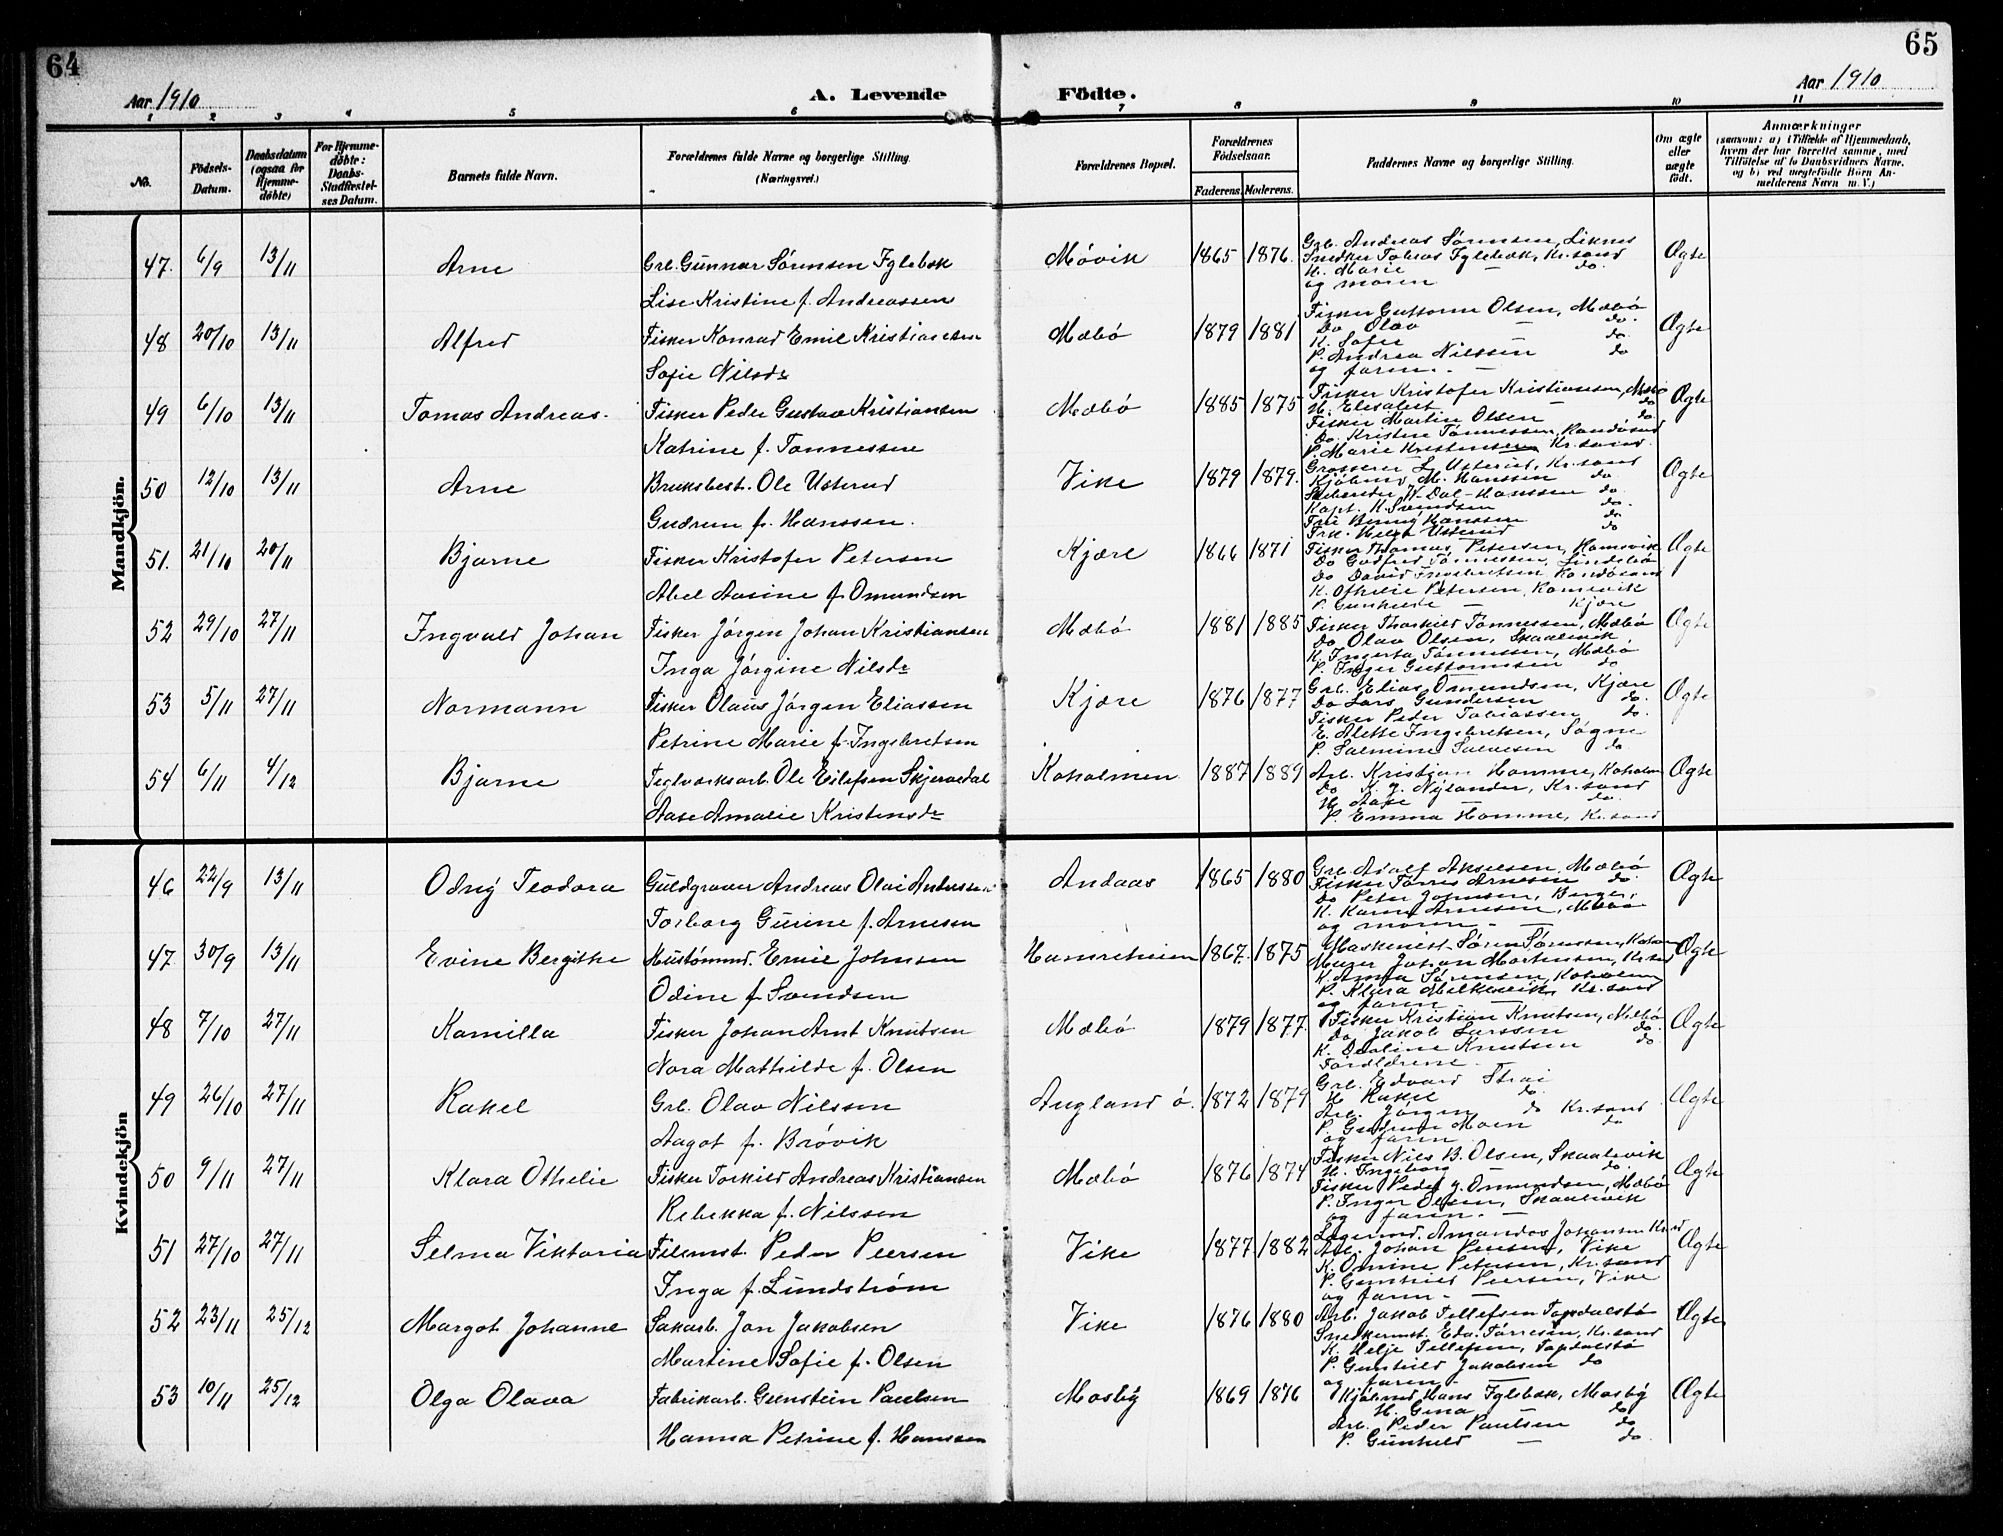 64
65
Aar 1910
A. Levende Födte.
Aar 1910
1 2 3 4 5 6 7 8 9 10 11
No.
Födsels-Datum.
Daabsdatum (ogsaa for Hjemmedöbte)
For Hjemmedöbte: Daabs-Stadfæstelses Datum.
Barnets fulde Navn.
Forældrenes fulde Navne og borgerlige Stilling. (Næringsvei.)
Forældrenes Bopæl.
Forældrenes Födselsaar.
Faderens. Moderens.
Faddernes Navne og borgerlige Stilling.
Om ægte eller uægte födt.
Anmærkninger
(saasom: a) i Tilfælde af Hjemmedaab, hvem der har forrettet samme, med Tilföielse af to Daabsvidners Navne, og b) ved uægtefödte Börn Anmelderens Navn m. V.)
Mandkjön.
47. 6/9 13/11 Arne Grb. Gunnar Sörensen Fglebæk Mövik 1865 1876. Grb. Andreas Sörensen, Liknes Ægte
Snedker Tobias Fglebæk, Kr.sand
H. Marie — do.
Lise Kristine f. Andreassen
og moren
48 20/10 13/11 Alfred Fisker Konrad Emil Kristiansen Mæbö 1879 1881 Fisker Guttorm Olsen, Mæbö Ægte
Do Olav — do.
K. Sofie do.
Sofie Nilsdr
P. Andrea Nilssen do
og faren. —
49 6/10 13/11 Tomas Andreas. Fisker Peder Gustav Kristiansen Mæbö 1885 1875 Fisker Kristofer Kristiansen, Mæbö Ægte
H. Elisabet — do
Fisker Martin Olsen do.
Katrine f. Tønnessen
Do. Kristen Tønnessen, Randösund
P. Marie Kristensen Kr.sand.
50 12/10 13/11 Arne Bruksbest. Ole Usterud Vike 1879 1879. Grosserer L. Usterud, Kr.sand Ægte
Kjøbm. M. Hanssen do
Gudrun f. Hanssen.
Kapt. K. Svendsen do.
Hanssen do
Frk. Helga Usterud do
51. 21/10 20/11 Bjarne Fisker Kristofer Petersen Kjære 1866 1871 Fisker Thomas Petersen, Ramsvik Ægte
Do Godfred Tønnessen, Lindebö
Do David Ingebretsen, Randösund
Abel Aasine f. Omundsen
K. Othelie Petersen, Ramsvik
P. Gunhilde — Kjære
52 29/10 27/11 Ingvald Johan Fisker Jörgen Johan Kristiansen Mæbö 1881 1885 Fisker Thorkild Tønnessen, Mæbö Ægte
Do Olav Olsen, Skaalevik,
Inga Jörgine Nilsdr
K. Ingerta Tønnessen, Mæbö
P. Inger Guttormsen do
53 5/11 27/11 Normann Fisker Olaus Jörgen Eliassen Kjære 1876 1877 Grb. Elias Omundsen, Kjære Ægte
Do Lars Gundersen do.
Fisker Peder Tobiassen do.
Petrine Marie f. Ingebretsen
E. Alette Ingebretsen, Søgne
P. Salmine Salvesen do
54 6/11 4/12 Bjarne Teglværksarb. Ole Eilefsen Skjerædal Koholmen 1887 1889 Arb. Kristian Homme, Koholm Ægte
Do K. J. Nylander, Kr.sand
H. Aase — do.
Aase Amalie Kristensdr
P. Emma Homme, Kr.sand
Kvindekjön
46 22/9 13/11 Odny Teodora Guldgraver Andreas Olai Andersen Andaas 1865 1880 Grb. Adolf Akselsen, Mæbö Ægte
Fisker Tørris Arnesen do.
Do Peter Johnsen, Bergen,
Torborg Gurine f. Arnesen
K. Karen Arnesen, Mæbö
og moren —
47 30/9 13/11 Evine Bergithe Hustømmd. Emil Johnsen Hamreheien 1867. 1875 Maskinist Sören Sörensen, Koholm Ægte
Murer Johan Mortensen, Kr.sand
K. Anna Sörensen, Koholmen
Odine f. Svendsen
P. Klara Kr.sand
og faren —
48 7/10 27/11 Kamilla Fisker Johan Arnt Knutsen Mæbö 1879 1877. Fisker Kristian Knutsen, Mæbö Ægte
Do Jakob Larssen do
K. Knutsen do.
Nora Mathilde f. Olsen
Forældrene. —
49 26/10 27/11 Rakel Grb. Olav Nilssen Augland ö. 1872 1879 Grb. Edvard Strai Ægte
H. Rakel do.
Arb. Jörgen do Kr.sand
Aagot f. Brøvik
P. Gudrun Moen do
og faren
50 9/11 27/11 Klara Othelie Fisker Torkild Andreas Kristiansen Mæbö 1876 1874 Fisker Nils B. Olsen, Skaalevik Ægte
H. Ingeborg — do.
Fisker Peder J. Omundsen, Mæbö
Rebekka f. Nilssen
P. Inger Olsen, Skaalevik
og faren. —
51 27/10 27/11 Selma Viktoria Filemst. Peder Peersen Vike 1877 1882 Amandas Johansen Kr.sd Ægte
Arb. Johan Peersen, Vike
K. Omine Petersen, Kr.sand
Inga f. Lundström
P. Gunhild Peersen, Vike
og faren. —
52 23/11 25/12 Margot Johanne Sakarb. Jon Jakobsen Vike 1876 1880 Arb. Jakob Tellefsen Topdalsø Ægte
Snekkermst. Edv. Tørresen, Kr.sand
K. Helje Tellefsen, Topdalsø
Martine Sofie f. Olsen
P. Gunhild Jakobsen do
og faren. —
53 10/11 25/12 Olga Olava Fabrikarb. Gunstein Paulsen Mosby 1869 1876 Kjöbmd Hans Fglebæk, Mosby Ægte
H. Gina — do
Arb. Peder Paulsen do
Hanna Petrine f. Hanssen
P. Gunhild — do.